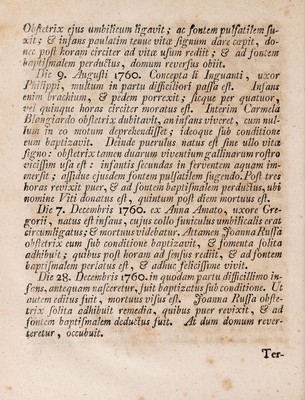 Obstetrix ejus umbilicum ligavit; ac fontem pulsatilem su-
xit; & infans paulatim tenue vitæ signum dare cœpit, do-
nec post horam circiter ad vitæ usum rediit; & ad fontem
baptismalem perductus, domum reversus obiit.
Die 9. Augusti 1760. Concepta li Inguanti, uxor
Philippi, multum in partu difficiliori passa est. Infans
enim brachium, & pedem porrexit; sicque per quatuor,
vel quinque horas circiter moratus est. Interim Carmela
Blangiardo obstetrix dubitavit, an infans viveret, cum nul-
lum in eo motum deprehendisset; ideoque sub conditione
eum baptizavit. Deinde puerulus natus est sine ullo vitæ
signo: obstetrix tamen duarum viventium gallinarum rostro
vicissim usa est: infantis secundas in ferventem aquam im-
mersit; assidue ejusdem fontem pulsatilem sugendo. Post tres
horas revixit puer, & ad fontem baptismalem perductus, ubi
nomine Viti donatus est, quintum post diem mortuus est.
Die 7. Decembris 1760. ex Anna Amato, uxore Gre-
gorii, natus est infans, cujus collo funiculus umbilicalis erat
circumligatus; & mortuus videbatur. Attamen Joanna Russa
obstetrix eum sub conditione baptizavit, & fomenta solita
adhibuit; quibus post horam ad sensus rediit, & ad fontem
baptismalem perlatus est, & adhuc feliciter vivit.
Die 28. Decembris 1760. in quodam partu difficillimo in-
fans, antequam nasceretur, fuit baptizatus sub conditione. Ut
autem editus fuit, mortuus visus est. Joanna Russa obste-
trix solita adhibuit remedia, quibus puer revixit, & ad
fontem baptismalem deductus fuit. At dum domum rever-
teretur, occubuit.
Ter-